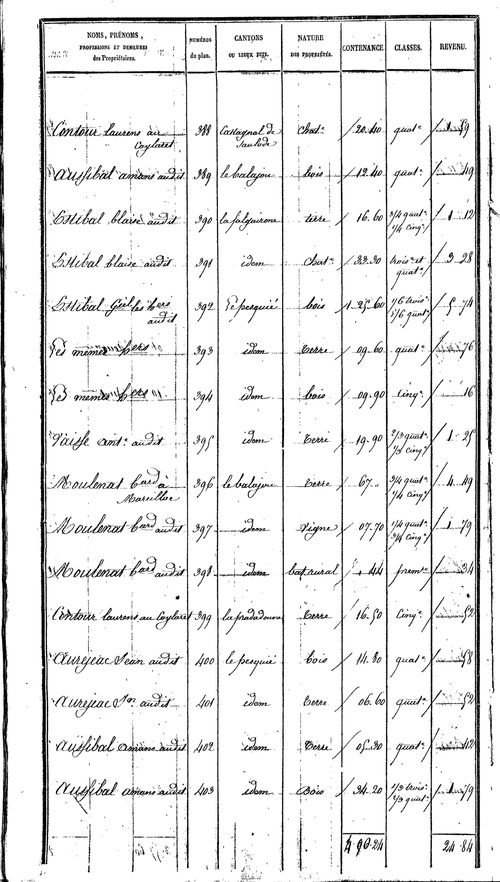 NOMS, PRÉNOMS, PROFESSIONS ET DEMEURES des Propriétaires. NUMÉROS du plan. CANTONS OU LIEUX DITS. NATURE DES PROPRIÉTÉS. CONTENANCE. CLASSES. REVENU.
Contour laurens au Caylaret 388 Castagnal de Chat. 20.40 quat. 1 59
Aussibal amans audit 389 le balajou bois 12.40 quat. 49
Estibal blaise audit 390 la falguirone terre 16.60 3/4 quat. 1/4 cinq. 1 12
Estibal blaise audit 391 idem Chat. 33.30 trois. et quat. 3 28
Estibal les hers audit 392 le pesquié bois 1 25 60 1/6 trois. 5/6 quat. 5 74
Les mêmes hers 393 idem Terre 09.60 quat. 76
Les mêmes hers 394 idem bois 09.90 Cinq. 16
Vaisse ant. audit 395 idem Terre 19.90 quat. cinq. 1 25
Moulenat Card à Marcillac 396 le balajou Terre 67 3/4 quat. 1/4 Cinq. 4 49
Moulenat Card audit 397 idem Vigne 07.70 1/4 quat. 3/4 cinq. 1 79
Moulenat Card audit 398 idem bat. rural 1 44 prem. 34
Contour laurens au Caylaret 399 la pradadoune Terre 16.50 Cinq. 52
Aurejac Jean audit 400 le pesquié bois 14.80 quat. 58
Aurejac audit 401 idem Terre 06.60 quat. 52
Aussibal amans audit 402 idem Terre 05.30 quat. 42
Aussibal amans audit 403 idem Bois 34.20 1/3 trois. 2/3 quat. 1 79
4 90 24 24 84